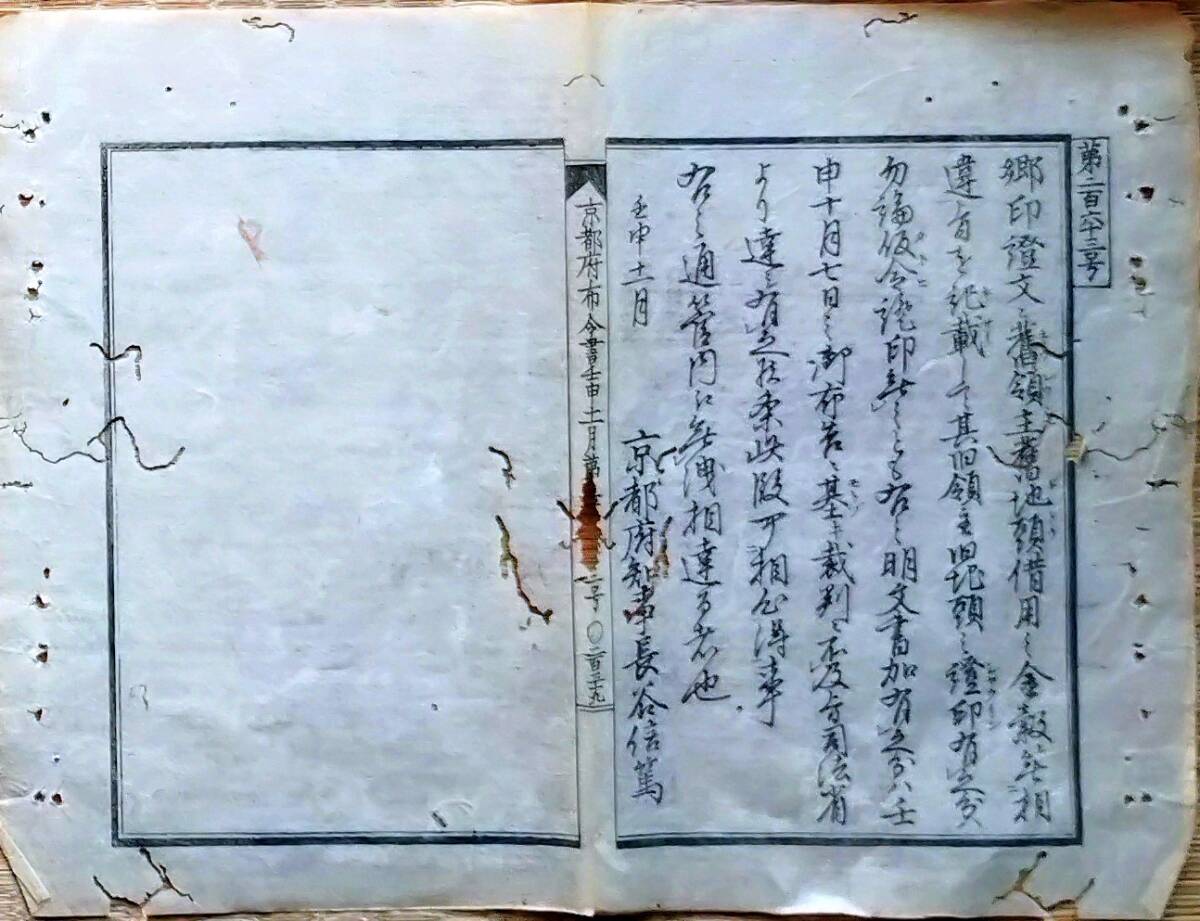 第二百六十三号
郷印證文ニ舊領主舊地頭借用之金穀無相
違旨を記載して其旧領主旧地頭之證印有之分ハ
勿論仮令證印無之とも右之明文書加有之分ハ壬
申十月七日之御布告ニ基キ裁判ニ不及旨司法省
より達之有之候条此段可相心得事
右之通管内江無洩相達る者也
壬申十一月
京都府知事長谷信篤
京都府布令書壬申十一月第
二号〇二百三十九